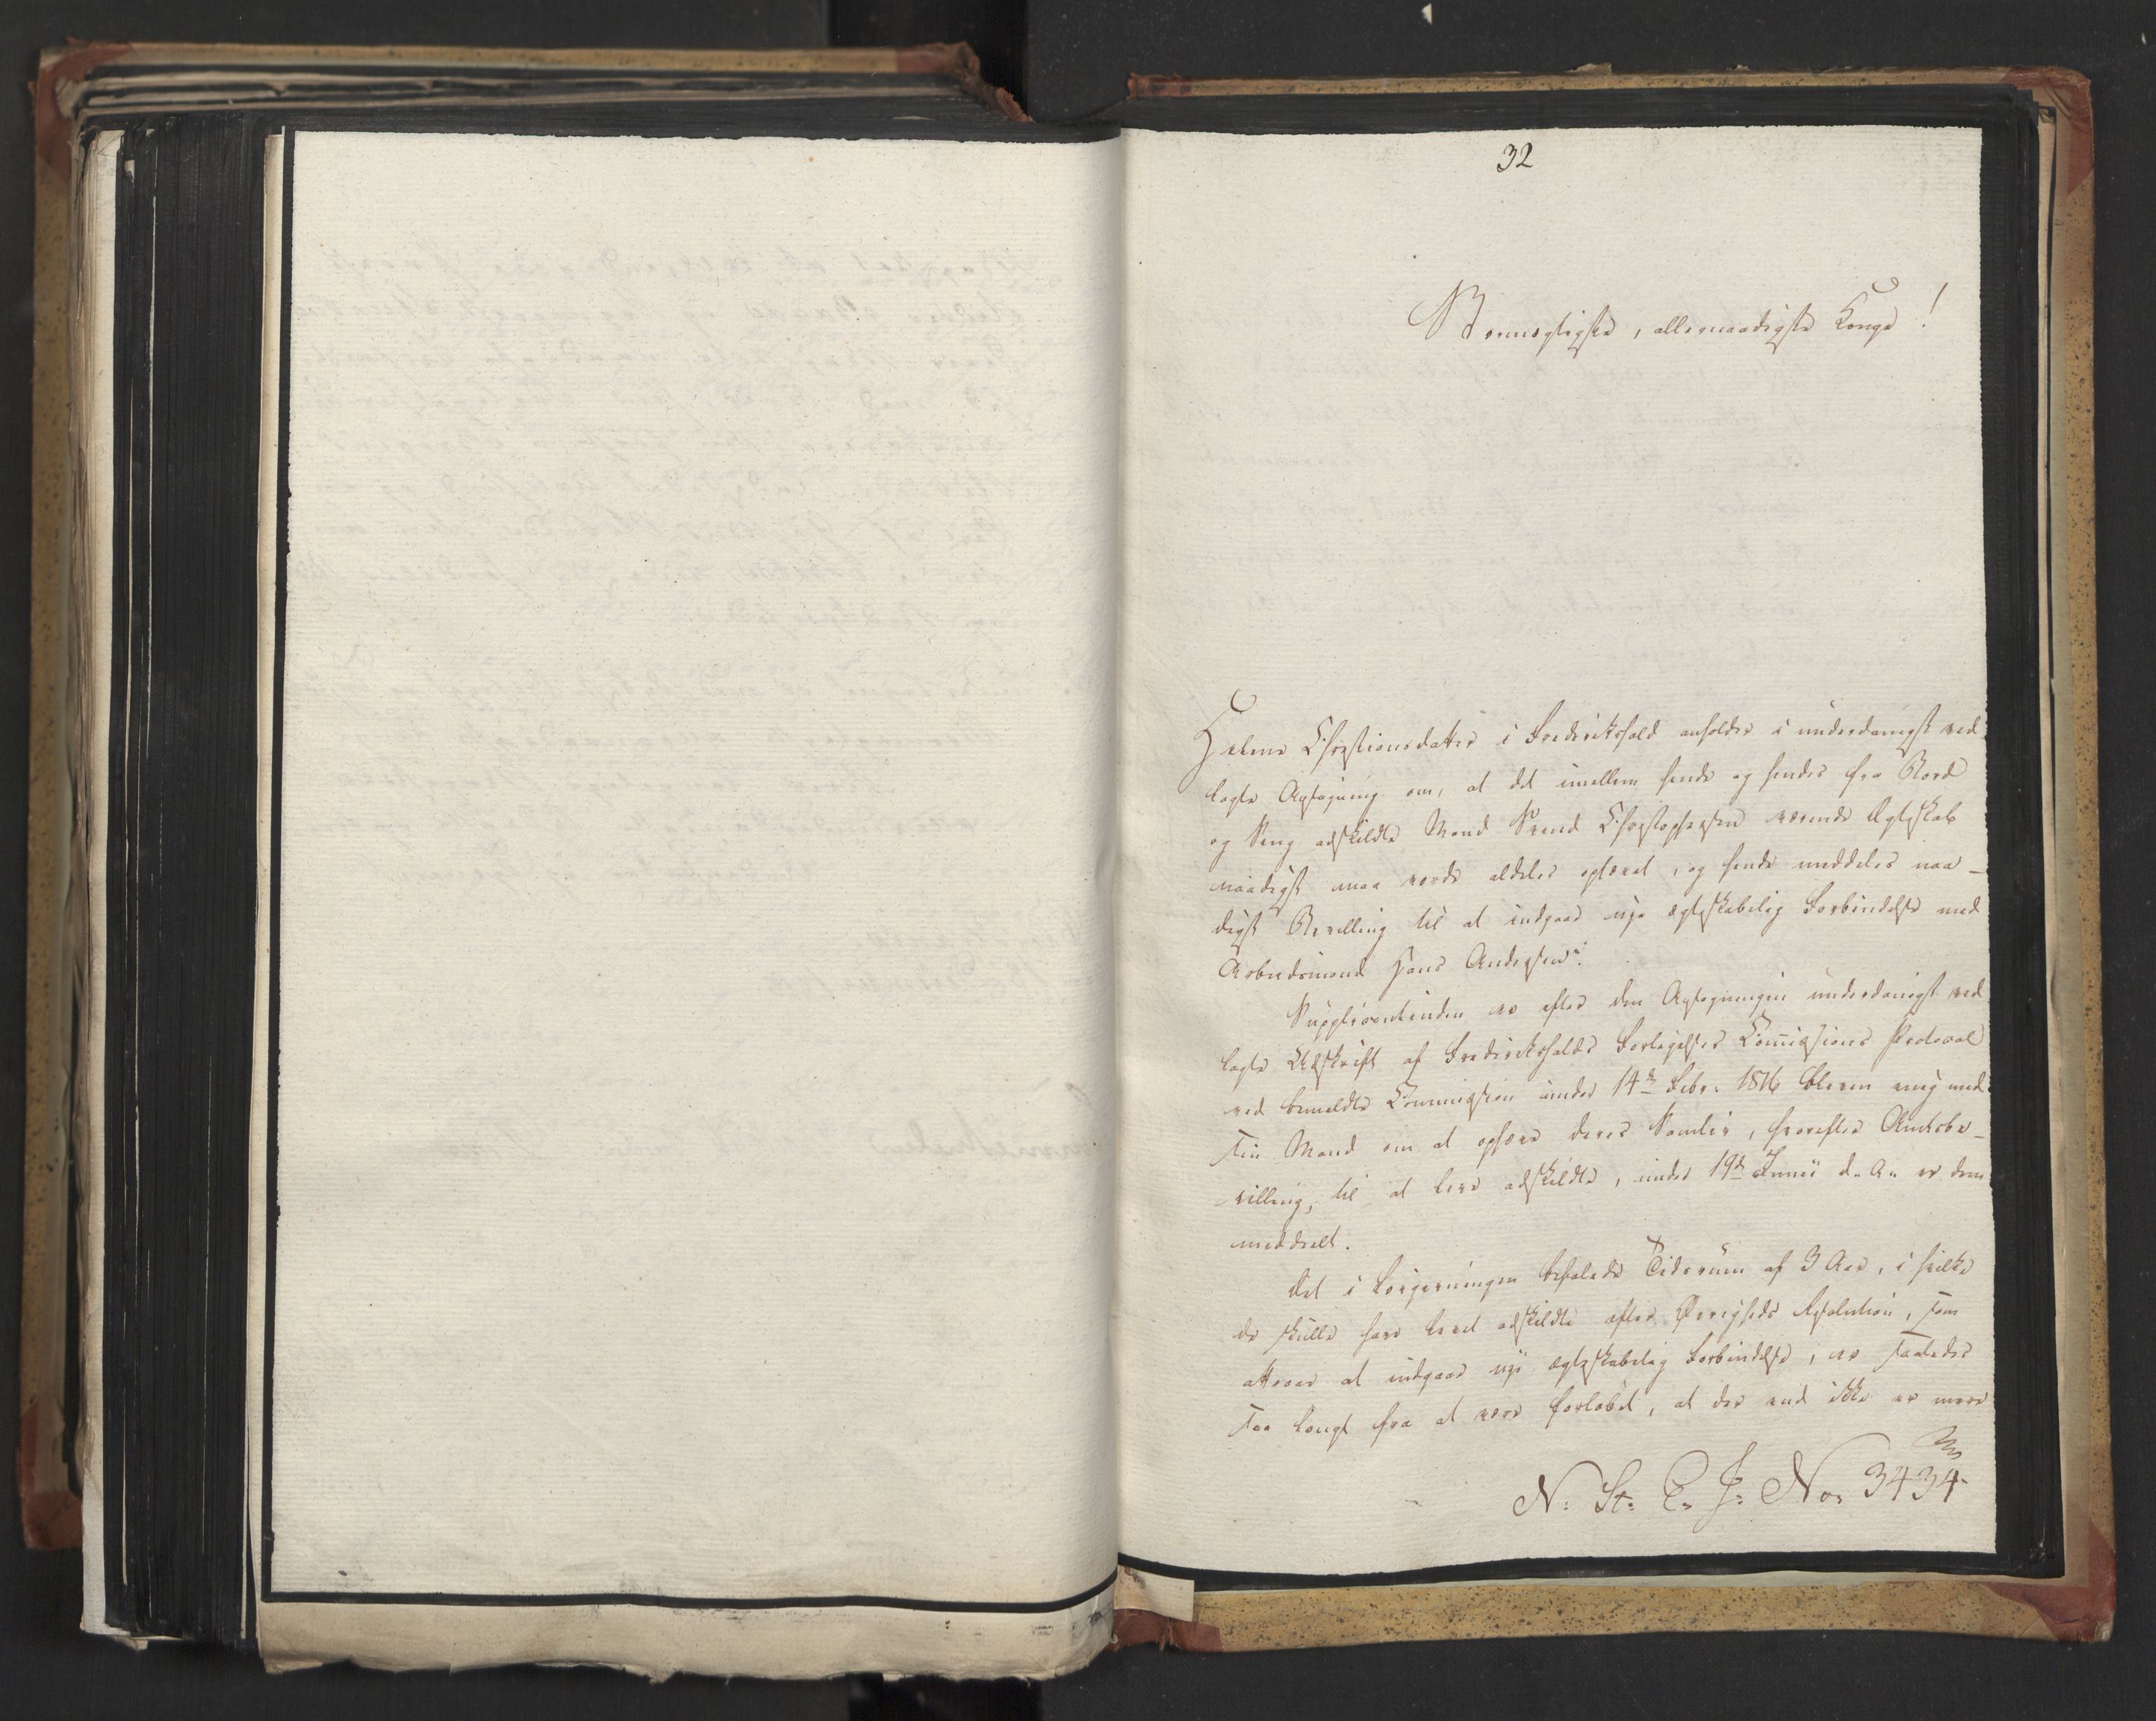 32
Stormægtigste, allernaadigste Konge!
Helene Christiansdatter i Frederikshald anholder i underdanigst ved-
lagte Ansøgning om, at det imellem hende og hendes fra Bord
og Seng adskildte Mand Svend Christophersen værende Ægteskab
naadigst maa vorde aldeles ophævet, og hende meddeles naa-
digst Bevilling til at indgaae nye ægteskabelig Forbindelse med
Arbeidsmand Hans Andersen.
Supplicantinden er efter den Ansøgningen underdanigst ved-
lagte Udskrift af Frederikshalds Forligelses Com̄issions Protocol
ved bemeldte Commission under 14de Febr: 1816 bleven enig med
sin Mand om at ophæve deres Samliv, hvorefter Amtsbe-
villing, til at leve adskildte, under 19de Junii d. A. er dem
meddeelt.
Det i Lovgivningen befalede Tidsrum af 3 Aar, i hvilke
de skulle have levet adskildte efter Øvrigheds Resolution, som
attraae at indgaae nye ægteskabelig Forbindelse, er saaledes
saa langt fra at være forløbet, at der end ikke er mere
N: St: C: J: No: 3434